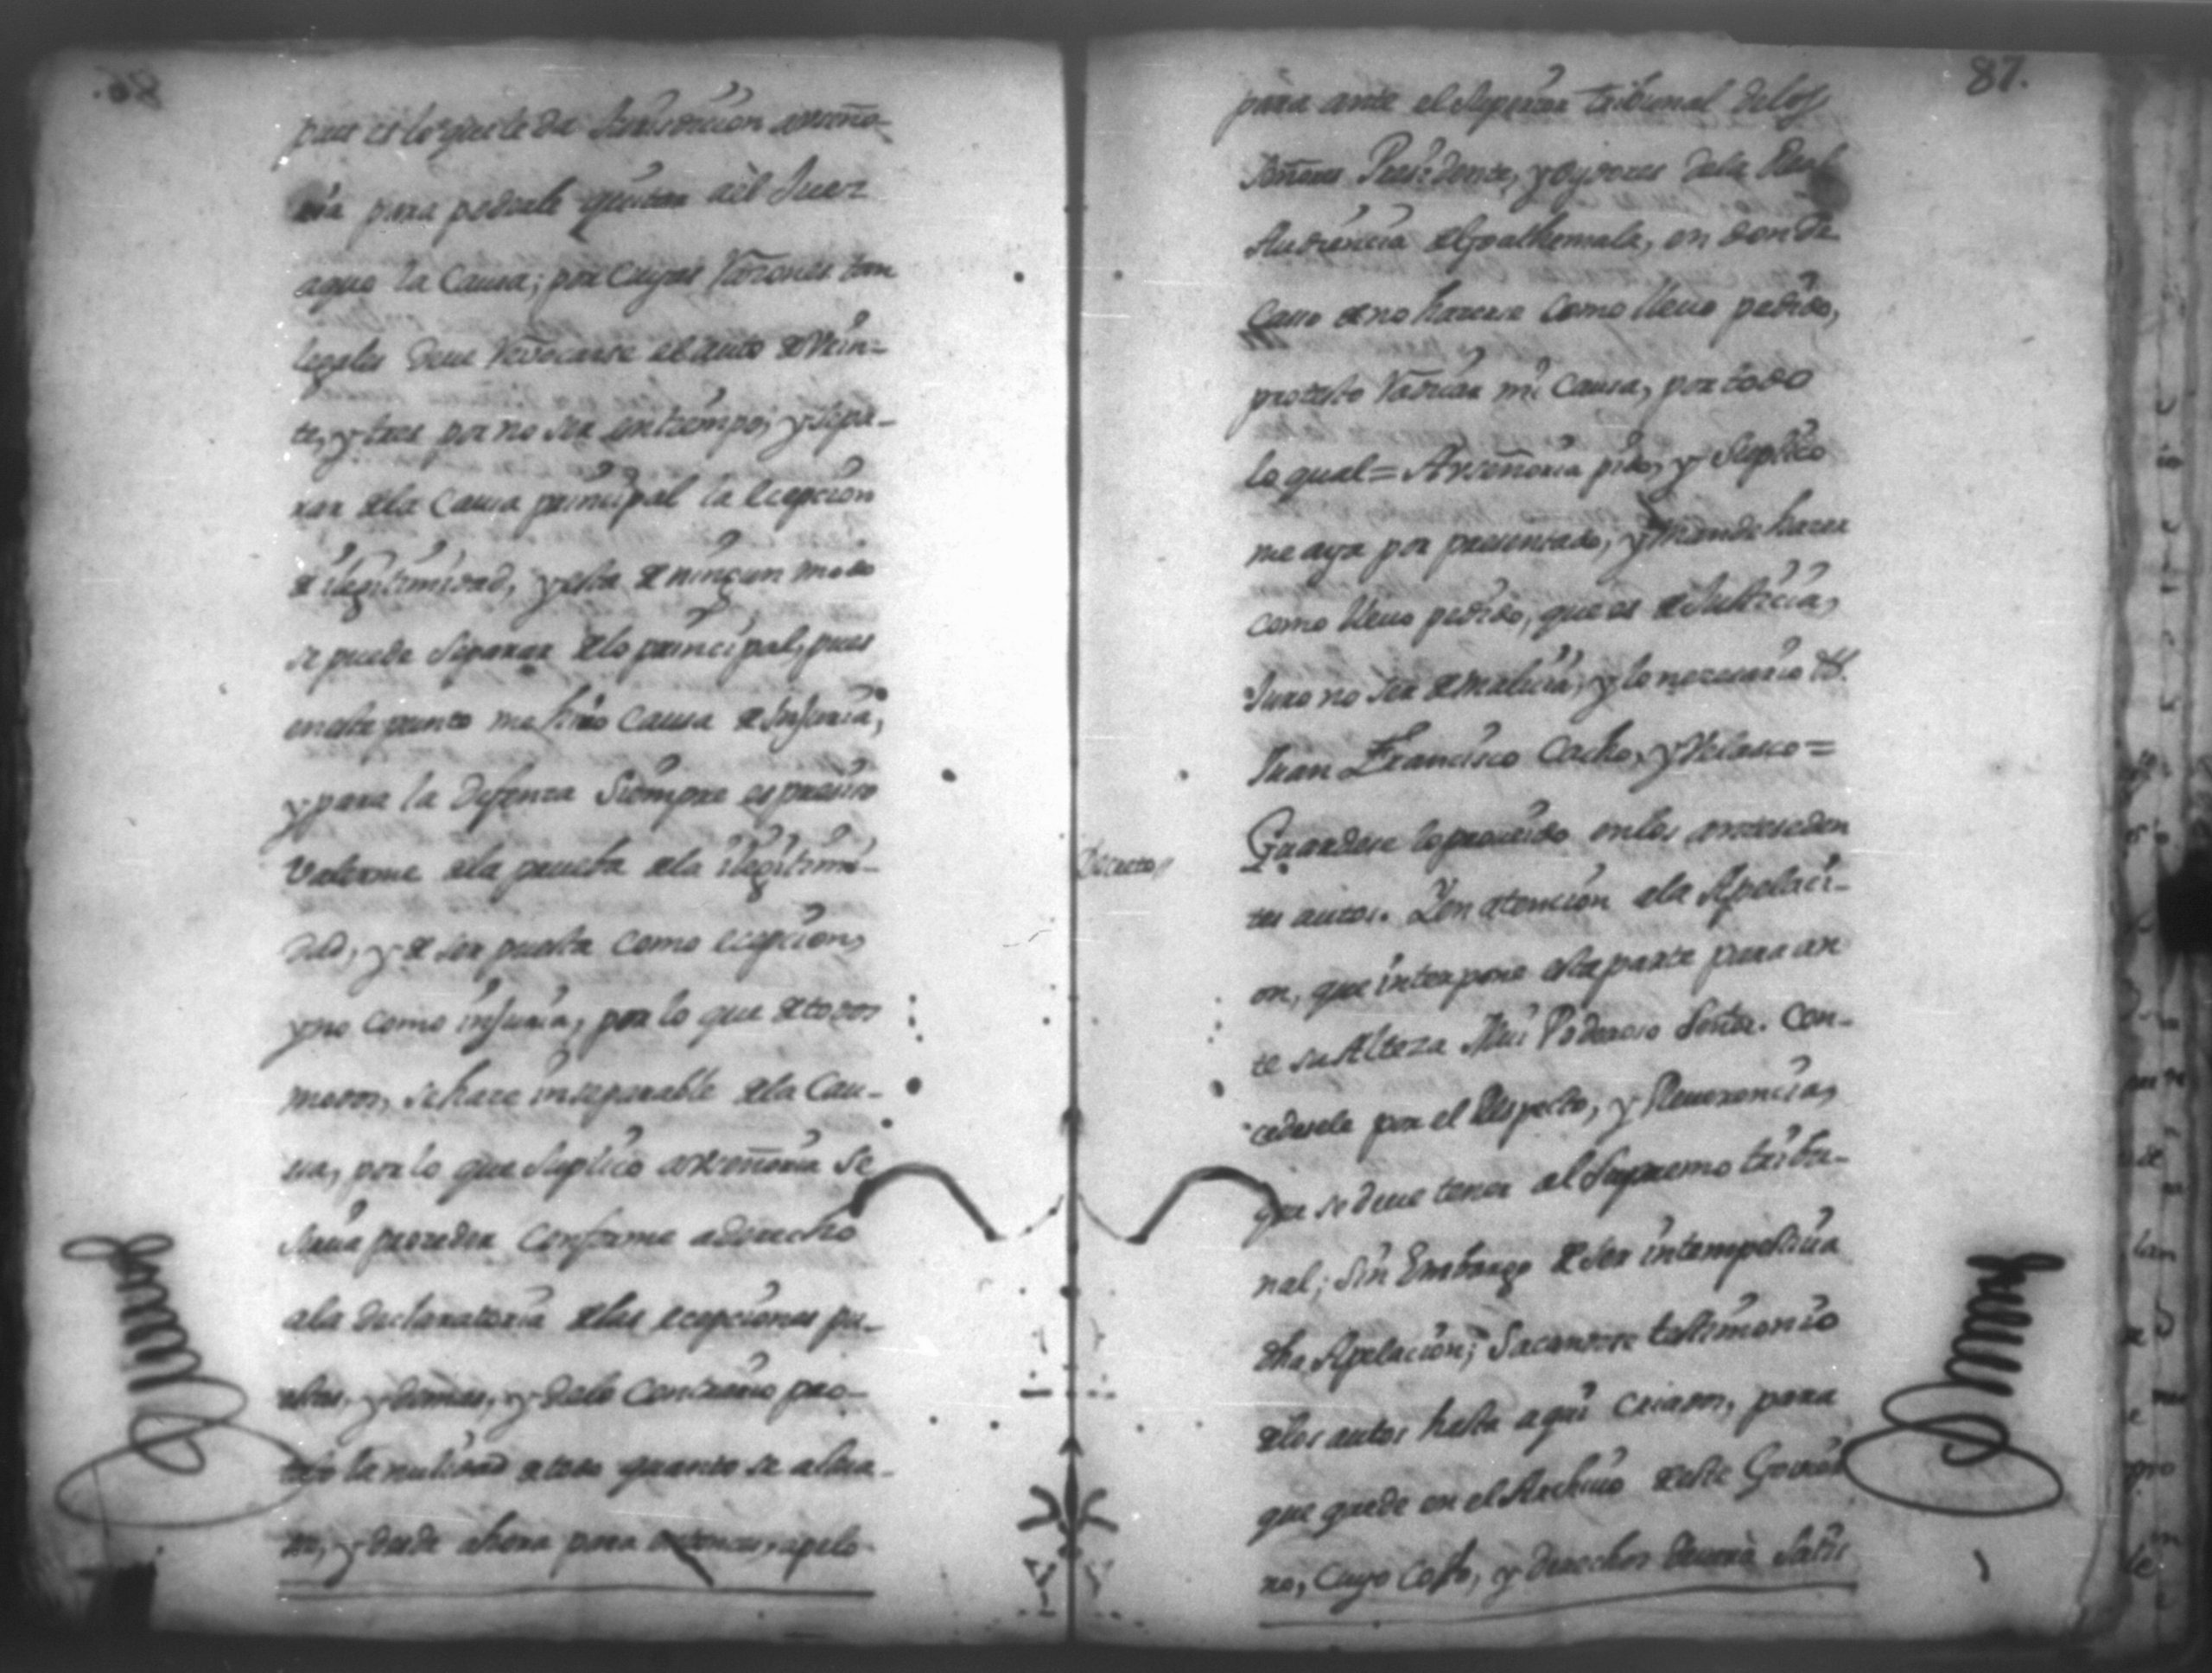 pues es lo que le da Jurisdicion avseño-
ria para poderle quitar aèl Juez
aquo la Causa; por cuyas Razones tan
legales deue Reuocarse el auto de Vein-
te, y tres por no ser entiempo, y sepa-
rar dela Causa principal la Ecepcion
de ilegitimidad, y esta de ningun modo
se puede Separar delo principal, pues
eneste punto me hizo Causa de Injuria,
y para la Defenza Siempre es presiso
Valerme dela prueba dela ilegitimi-
dad, y de ser puesta como ecepcion,
y no como injuria, por lo que de todos
modos, se haze inseparable dela Cau-
sa, por lo que Suplico avseñoria Se
Sirua proceder Conforme aderecho
ala declaratoria delas ecepciones pu-
estas, y demas, y delo Contrario pro-
testo la nulidad de todo quanto se actua-
re, y desde ahora para entonces, apelo
87.
para ante el Superior tribunal delos
Señores Presidente, y oydores dela Real
Audiencia de Goathemala, en donde
Caso de no hazerse Como lleuo pedido,
protesto Radicar mi Causa, por todo
lo qual= Avseñoria pido, y Suplico
me aya por presentado, y Mande hazer
como lleuo pedido, que es de Justicia,
Juro no ser de malicia, y lo nezesario &.
Juan Francisco Cacho, y Velasco=
Decreto
Guardese loproueido enlos anteseden
tes autos. Y en atencion ala Apelaci-
on, que interpone esta parte para an
te su Alteza Mui Poderoso Señor. Con-
cedesele por el Respecto, y Reuerencia,
que se deue tener al Supremo tribu-
nal; Sin Embargo de Ser intempestiua
dha Apelacion; Sacandose testimonio
delos autos hasta aqui criados, para
que quede en el Archiuo deste Govier
no, Cuyo Costo, y derechos deuerà Satis